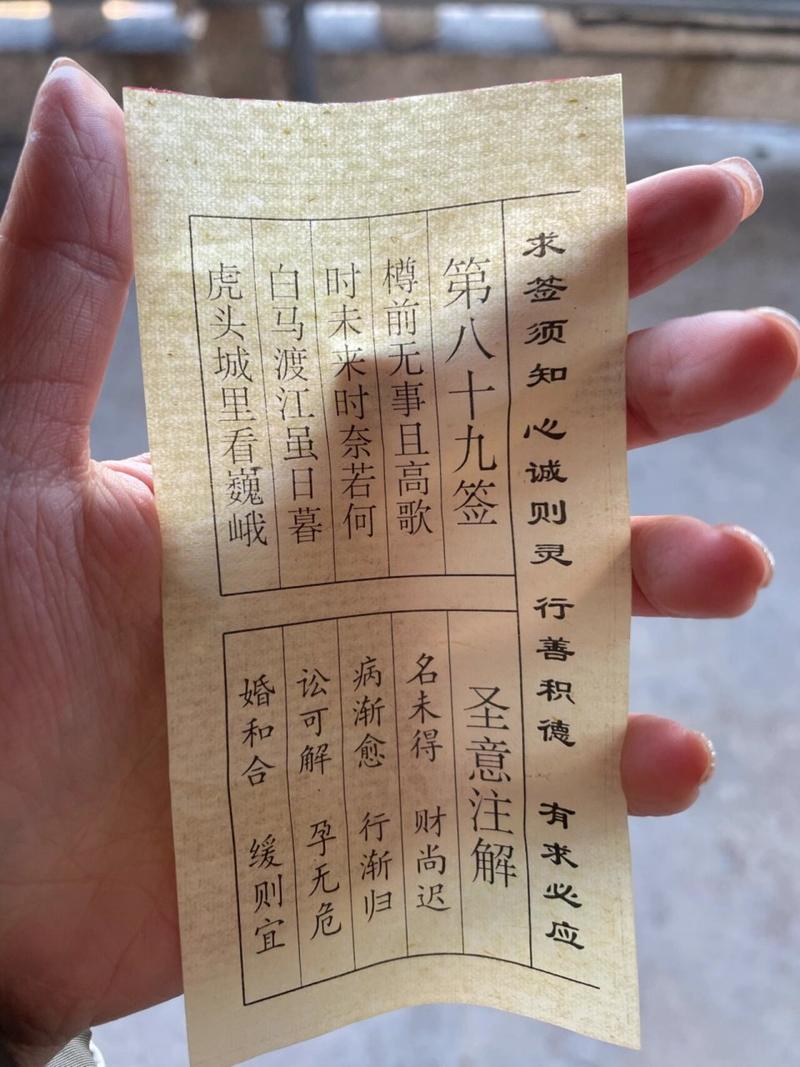 求签须知 心诚则灵 行善积德 有求必应
第八十九签
樽前无事且高歌
时未来时奈若何
白马渡江虽日暮
虎头城里看巍峨
圣意注解
名未得 财尚迟
病渐愈 行渐归
讼可解 孕无危
婚和合 缓则宜